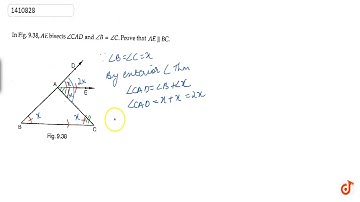 1410828
In Fig. 9.38, AE bisects ∠CAD and ∠B = ∠C. Prove that AE ∥ BC.
∵ ∠B = ∠C = x
By exterior ∠ Thm
∠CAD = ∠B + ∠x
∠CAD = x + x = 2x
D
A
x
2x
E
B
x
x
C
Fig. 9.38
doubtnut